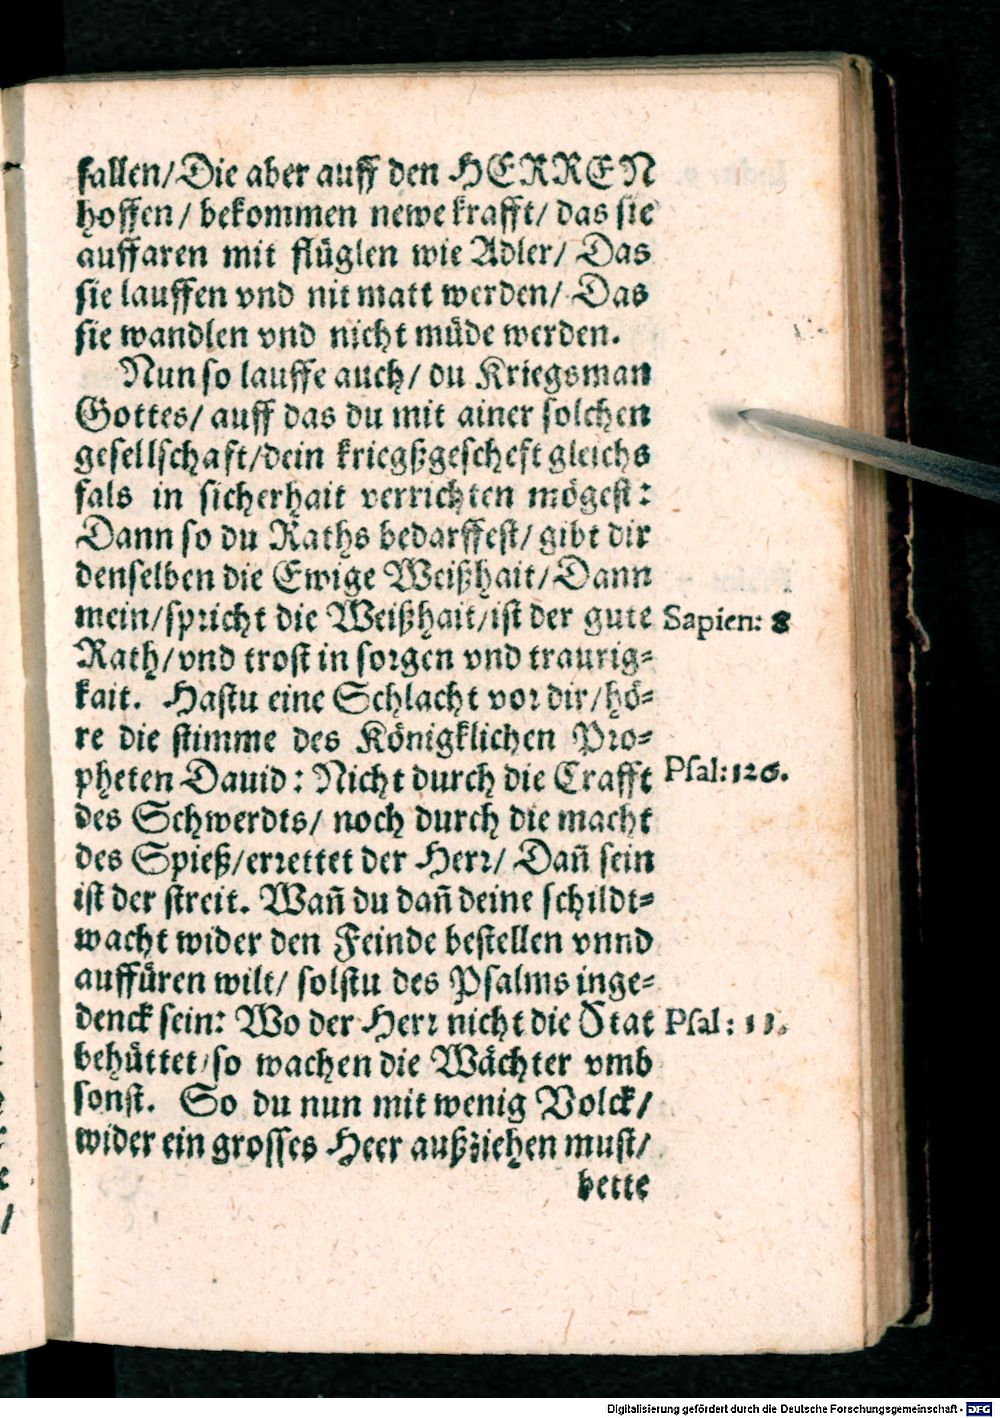 fallen/Die aber auff den HERREN
hoffen/ bekommen newe krafft/ das sie
auffaren mit flüglen wie Adler/ Das
sie lauffen vnd nit matt werden/ Das
sie wandlen vnd nicht müde werden.
Nun so lauffe auch/ du Kriegsman
Gottes/ auff das du mit ainer solchen
gesellschaft/dein kriegßgescheft gleichs
fals in sicherhait verrichten mögest:
Dann so du Raths bedarffest/ gibt dir
denselben die Ewige Weißhait/ Dann
mein/spricht die Weißhait/ist der gute
Sapien: 8
Rath/vnd trost in sorgen vnd traurig=
kait. Hastu eine Schlacht vor dir/hö=
re die stimme des Königklichen Pro=
pheten Dauid: Nicht durch die Crafft
Psal:126.
des Schwerdts/ noch durch die macht
des Spieß/errettet der Herr/ Dañ sein
ist der streit. Wañ du dañ deine schildt=
wacht wider den Feinde bestellen vnnd
auffüren wilt/ solstu des Psalms inge=
denck sein: Wo der Herr nicht die Stat
Psal: 11.
behüttet/so wachen die Wächter vmb
sonst. So du nun mit wenig Volck/
wider ein grosses Heer außziehen must/
bette
Digitalisierung gefördert durch die Deutsche Forschungsgemeinschaft - DFG